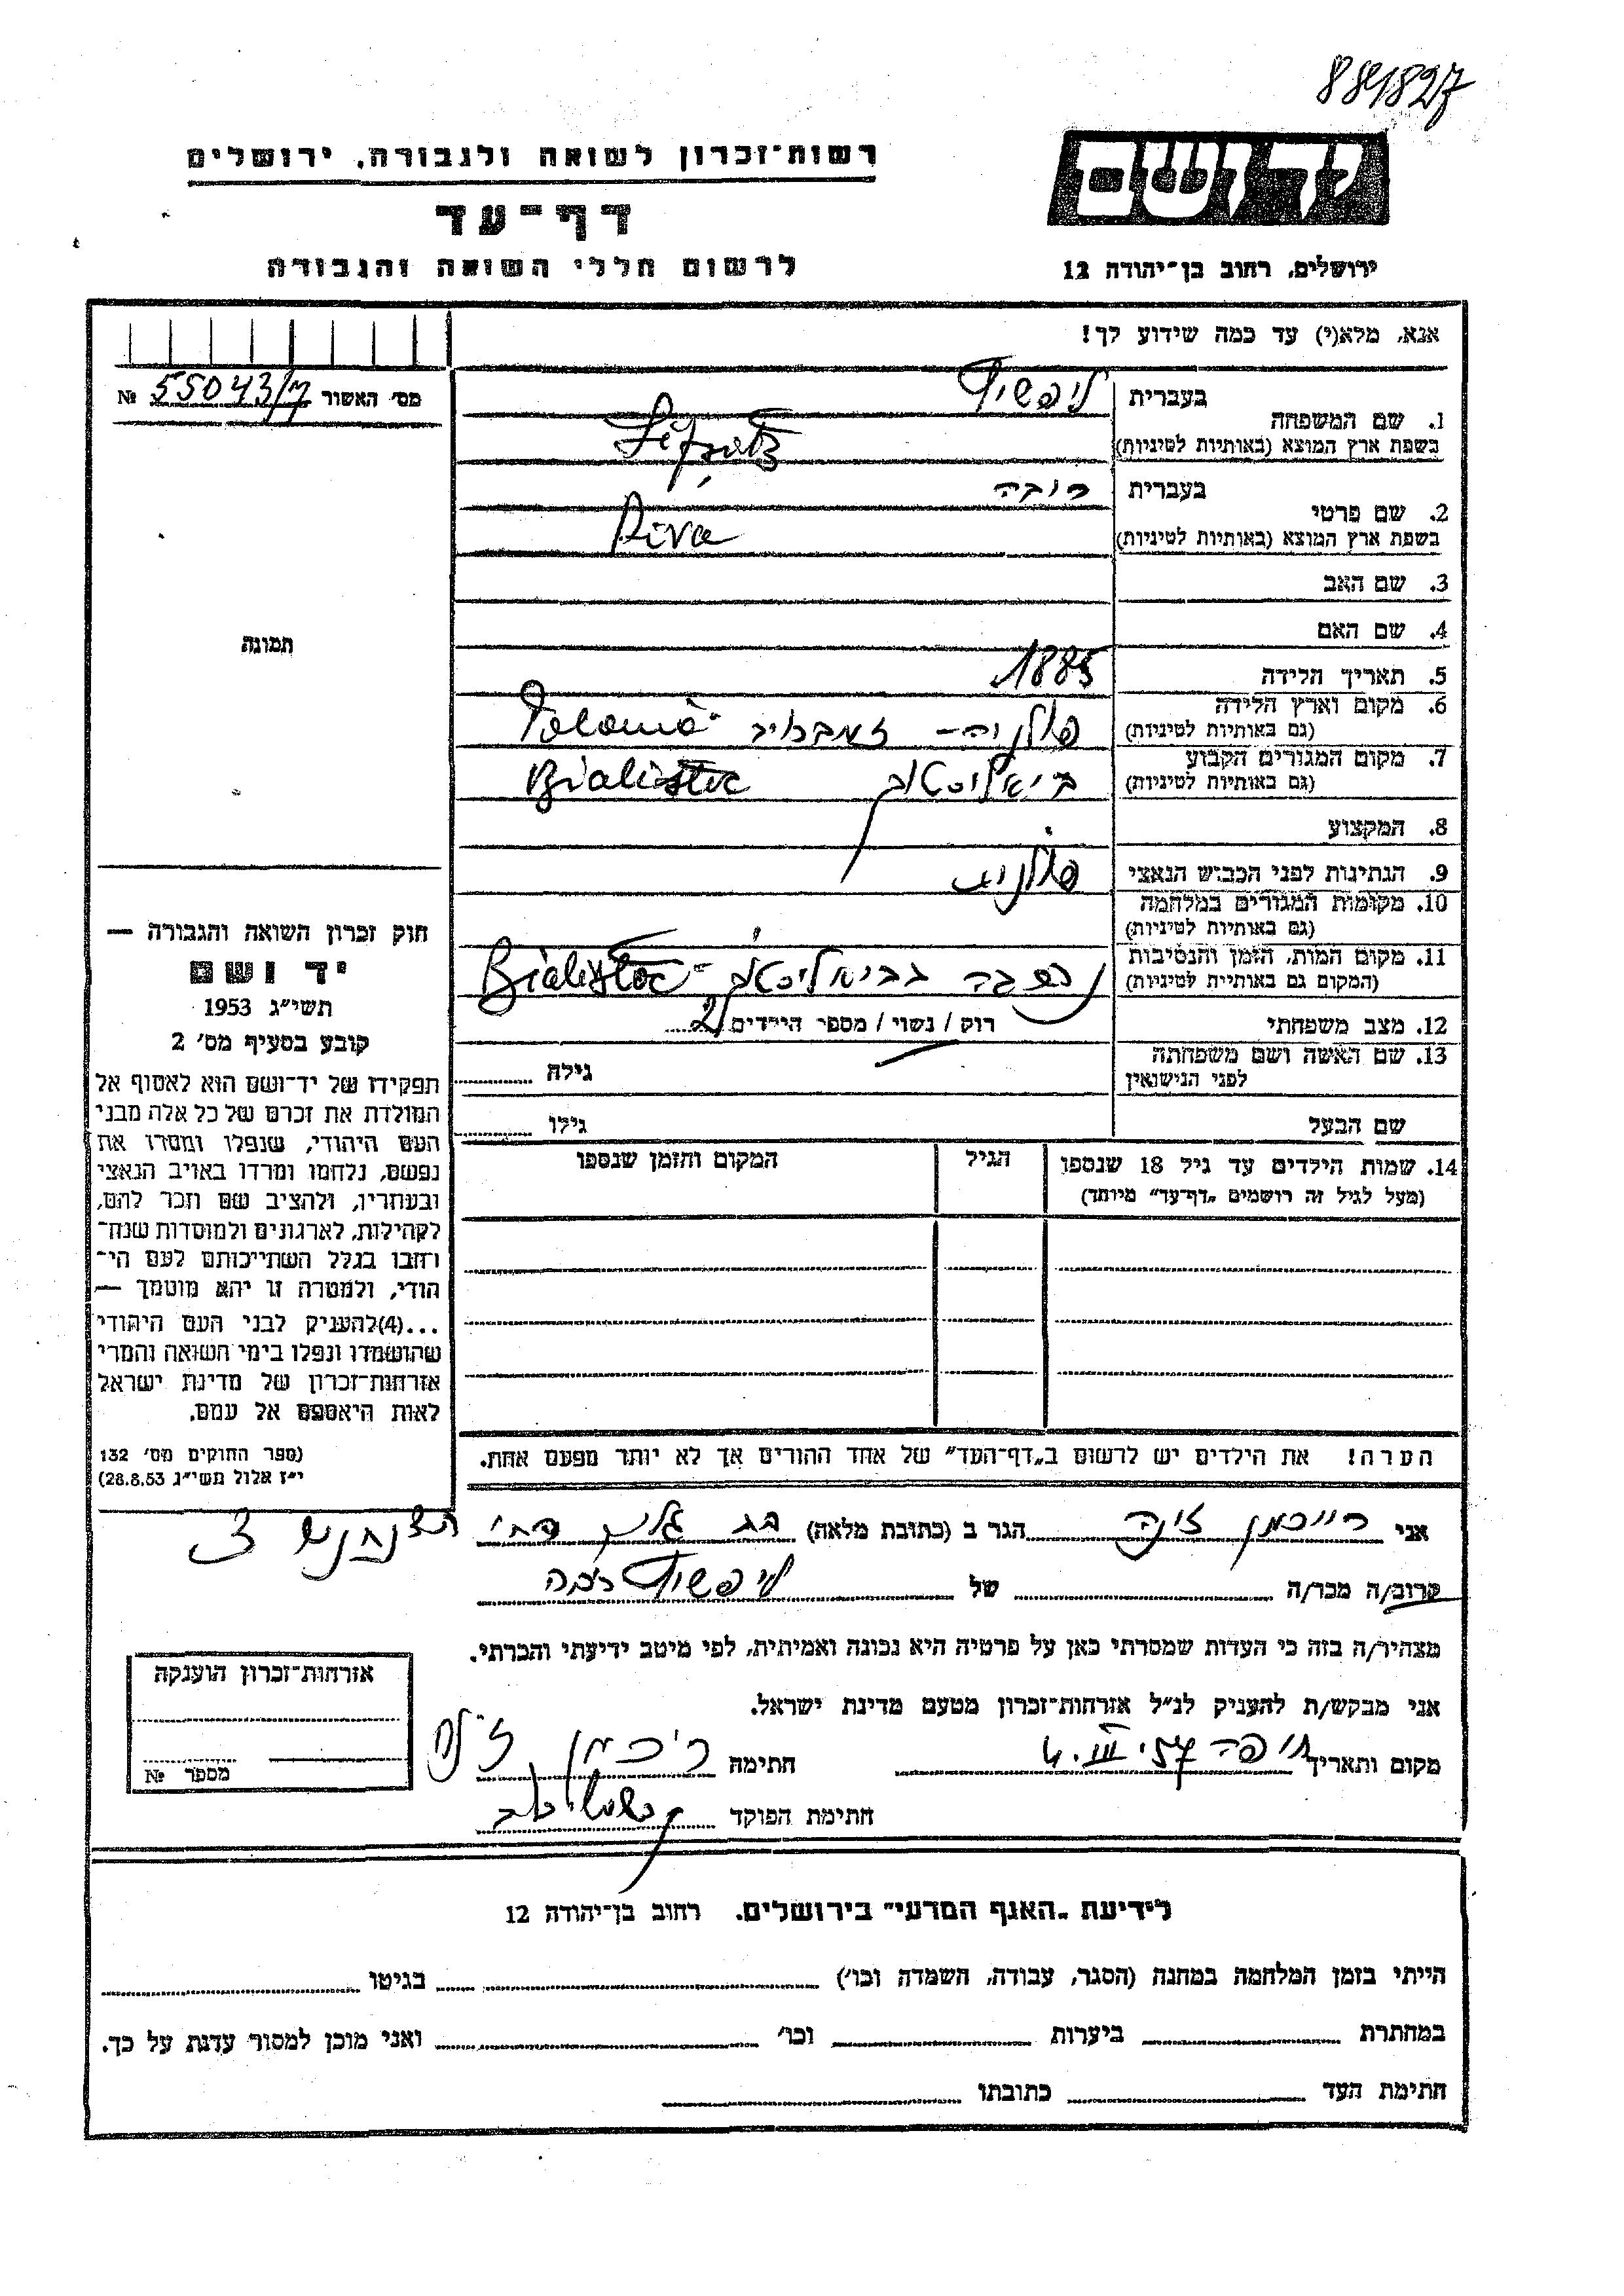 881827
יד ושם
רשות־זכרון לשואה ולגבורה, ירושלים
דף־עד
לרשום חללי השואה והגבורה
ירושלים, רחוב בן־יהודה 12
אנא, מלא(י) עד כמה שידוע לך!
מס׳ האשור 55043/7 №
תמונה
חוק זכרון השואה והגבורה —
יד ושם
תשי״ג 1953
קובע בסעיף מס׳ 2
תפקידו של יד־ושם הוא לאסוף אל
המולדת את זכרם של כל אלה מבני
העם היהודי, שנפלו ומסרו את
נפשם, נלחמו ומרדו באויב הנאצי
ובעוזריו, ולהציב שם וזכר להם,
לקהילות, לארגונים ולמוסדות שנח־
רחבו בגלל השתייכותם לעם הי־
הודי, ולמטרה זו יהא מוסמך —
...(4)להעניק לבני העם היהודי
שהושמדו ונפלו בימי השואה והמרי
אזרחות־זכרון של מדינת ישראל
לאות היאספם אל עמם.
(ספר החוקים מס׳ 132
י״ז אלול תשי״ג 28.8.53)
1. שם המשפחה
בעברית ליפשיץ
בשפת ארץ המוצא (באותיות לטיניות)
2. שם פרטי
בעברית
בשפת ארץ המוצא (באותיות לטיניות) Riva
3. שם האב
4. שם האם
5. תאריך הלידה 1885
6. מקום וארץ הלידה
(גם באותיות לטיניות) פולניה־ Polonia
7. מקום המגורים הקבוע
(גם באותיות לטיניות) ביאליסטוק Bialistoc
8. המקצוע
9. הנתינות לפני הכבוש הנאצי פולנית
10. מקומות המגורים במלחמה
(גם באותיות לטיניות)
11. מקום המות, הזמן והנסיבות
(המקום גם באותיית לטיניות) נספה בביאליסטוק־ Bialistoc
12. מצב משפחתי רוק / נשוי / מספר הילדים 2
13. שם האשה ושם משפחתה
לפני הנישואין גילה
שם הבעל גילו
14. שמות הילדים עד גיל 18 שנספו הגיל המקום והזמן שנספו
(מעל לגיל זה רושמים „דף־עד״ מיוחד)
הערה! את הילדים יש לרשום ב„דף־העד״ של אחד ההורים אך לא יותר מפעם אחת.
אני רייכמן הגר ב (כתובת מלאה)
קרוב/ה מכר/ה של ליפשיץ
מצהיר/ה בזה כי העדות שמסרתי כאן על פרטיה היא נכונה ואמיתית, לפי מיטב ידיעתי והכרתי.
אני מבקש/ת להעניק לנ״ל אזרחות־זכרון מטעם מדינת ישראל.
מקום ותאריך חיפה 4.III.57 חתימה
חתימת הפוקד
אזרחות־זכרון הוענקה
מספר №
לידיעת „האגף המדעי״ בירושלים. רחוב בן־יהודה 12
הייתי בזמן המלחמה במחנה (הסגר, עבודה, השמדה וכו׳) בגיטו
במחתרת ביערות וכו׳ ואני מוכן למסור עדות על כך.
חתימת העד כתובתו